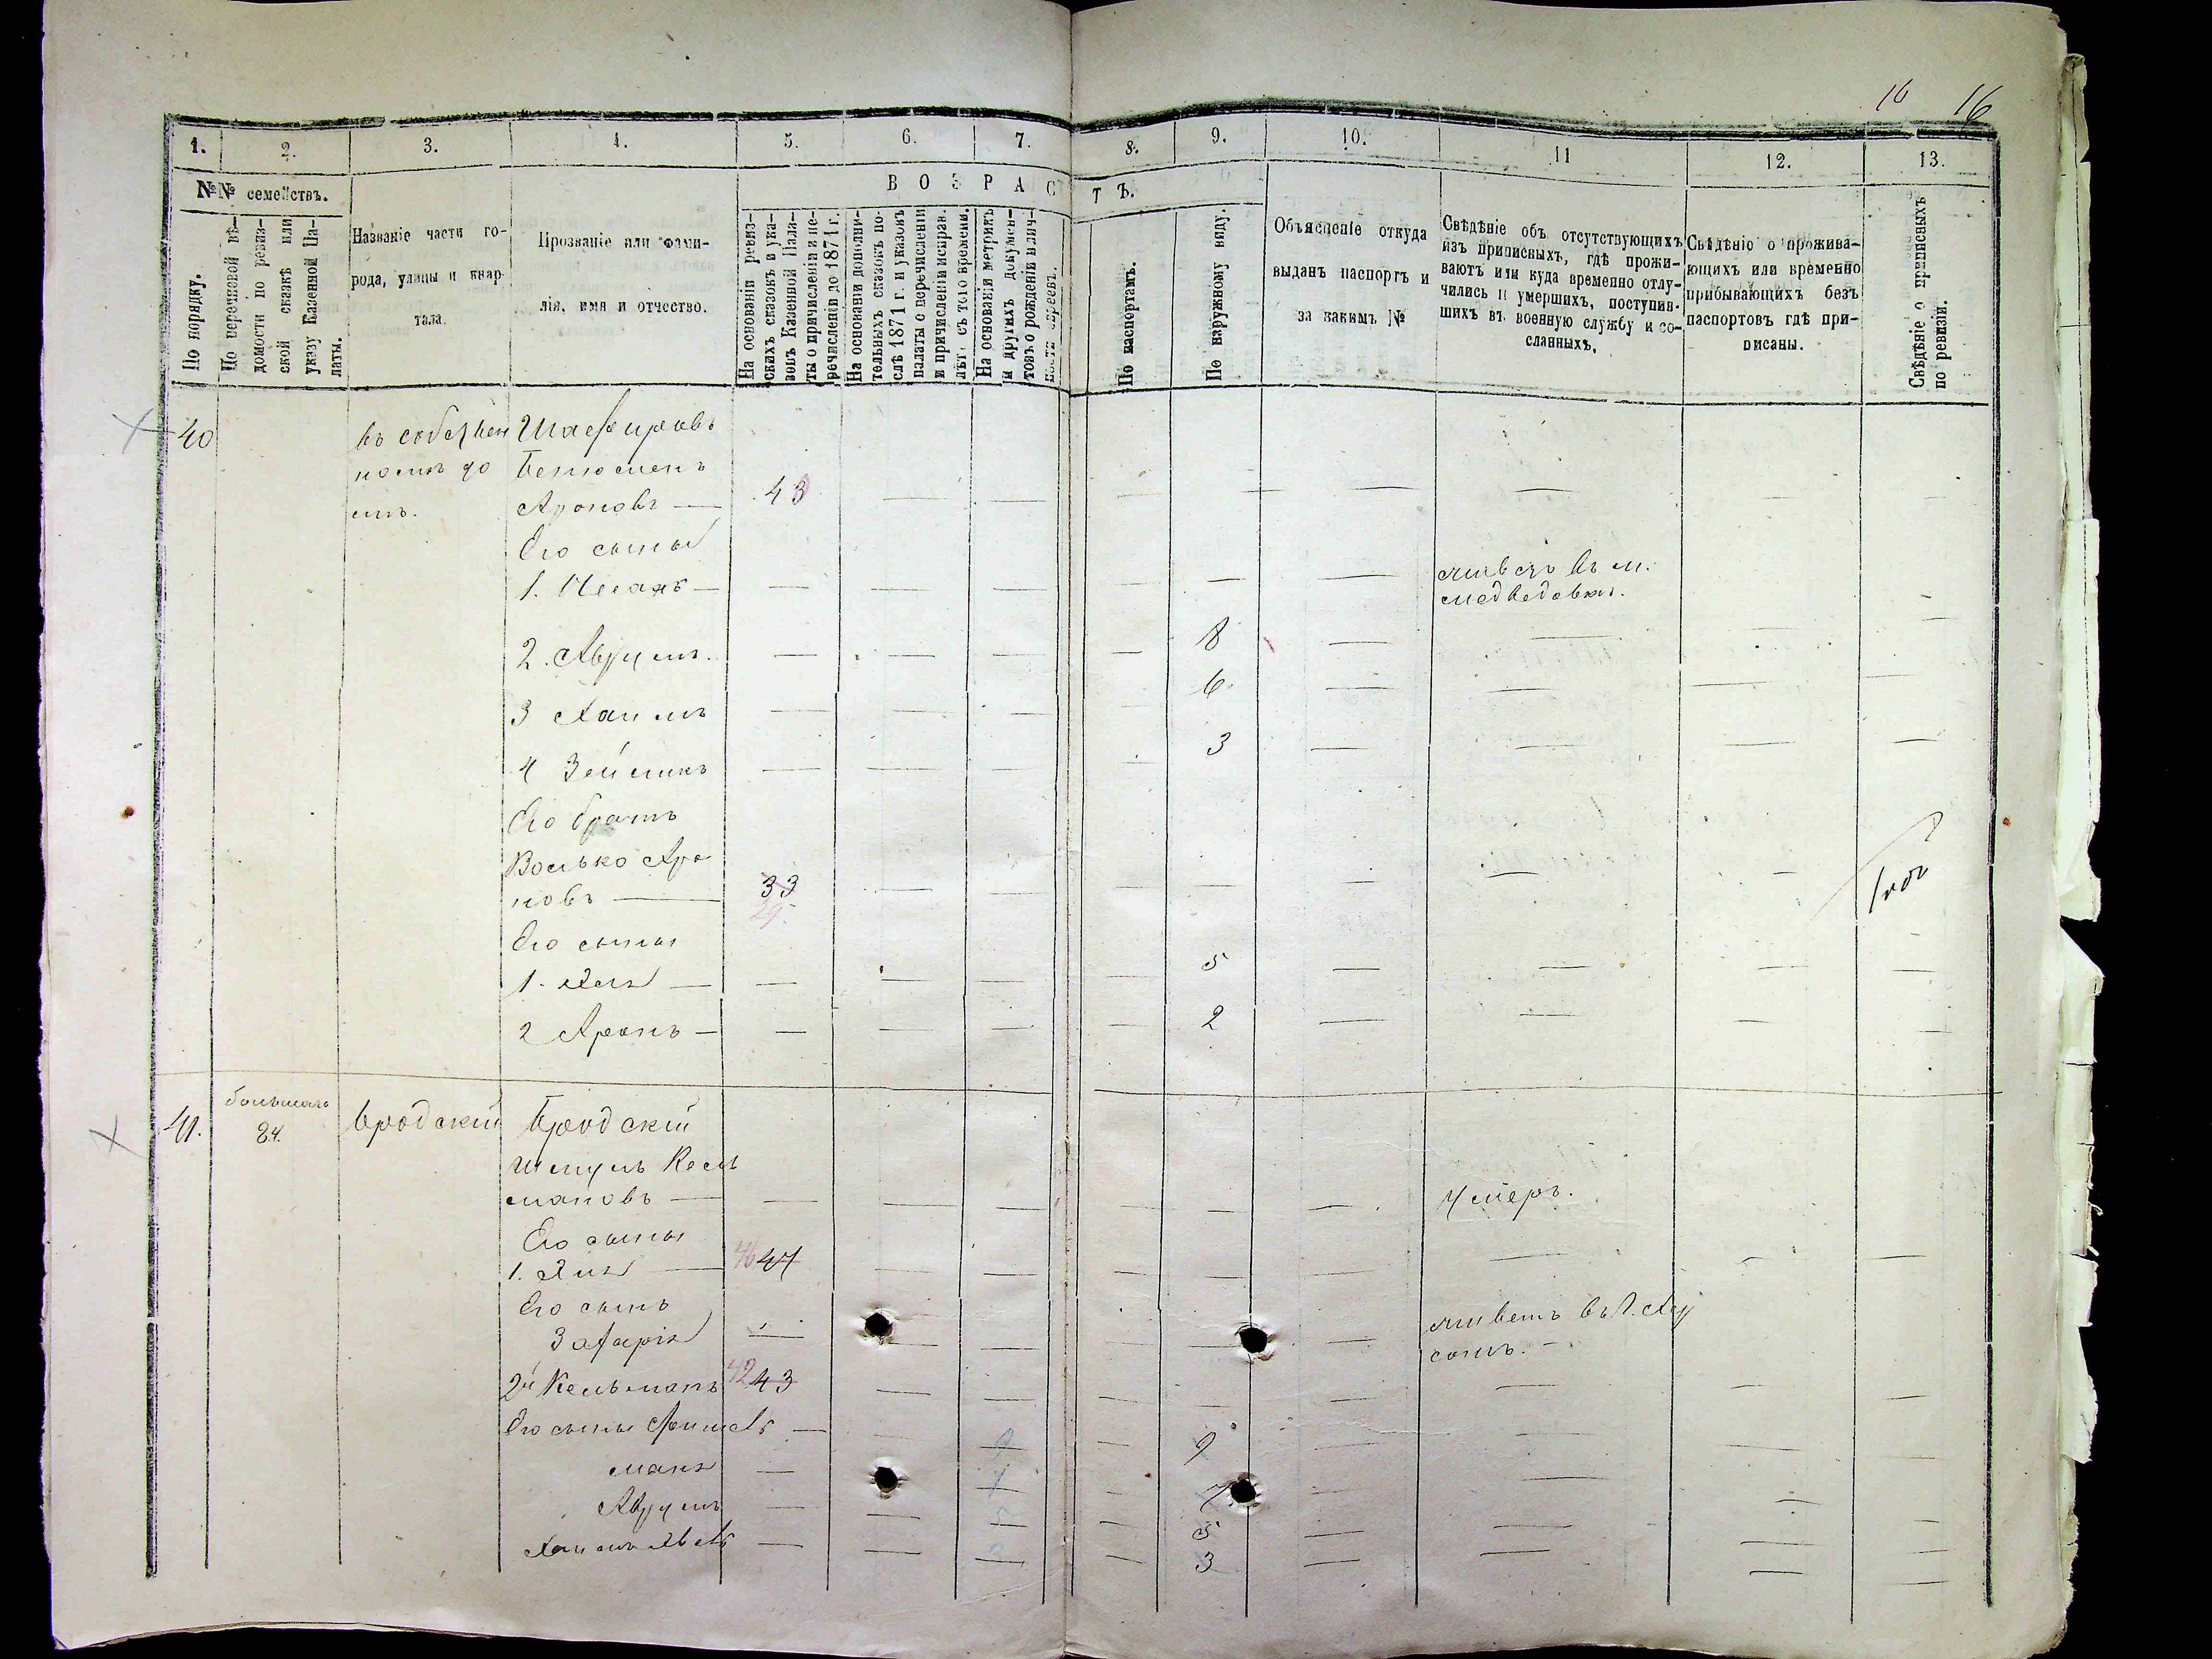 16 16
1. 2. 3. 4. 5. 6. 7. 8. 9. 10. 11 12. 13.
№№ семействъ.
В О З Р А С Т Ъ.
По порядку.
По перечневой вѣ-
домости по ревиз-
ской сказкѣ или
указу Казенной Па-
латы.
Названіе части го-
рода, улицы и квар
тала.
Прозваніе или фами-
лія, имя и отчество.
На основаніи ревиз-
скихъ сказокъ и ука-
зовъ Казенной Пала-
ты о причисленіи и пе-
речисленіи до 1871 г.
На основаніи дополни-
тельныхъ сказокъ по-
слѣ 1871 г. и указовъ
палаты о перечисленіи
и причисленіи исправ.
лѣтъ съ того времени.
На основаніи метрикъ
и другихъ докумен-
товъ о рожденіи и лич-
ности евреевъ.
По паспортамъ.
По наружному виду.
Объясненіе откуда
выданъ паспортъ и
за какимъ №
Свѣдѣніе объ отсутствующихъ
изъ приписныхъ, гдѣ прожи-
ваютъ или куда временно отлу-
чились и умершихъ, поступив-
шихъ въ военную службу и со-
сланныхъ.
Свѣдѣніе о прожива-
ющихъ или временно
прибывающихъ безъ
паспортовъ гдѣ при-
писаны.
Свѣдѣніе о приписныхъ
по ревизіи.
40 въ собствен Шафировъ
номъ до Беньюменъ
мѣ. Ароновъ — 43 — — — — — — — —
Его сыны
1. — — — — — — живетъ въ м.
медведовкѣ.
2. Аврумъ. — — — — 8 — — — —
3 Хаимъ — — — 6 — — — —
4 Зейликъ — — — — 3 — — — —
Его братъ
Волько Аро
новъ — 33 — — — — — — —
29.
Его сыны
1. — — — — — 5 — — — —
2 Аронъ — — — — — 2 — — — —
41. 84. Бродскій Бродскій
Шмуль Кель
мановъ — — — — — — — Умеръ.
Его сыны
1. — 46 47 — — — — — — — —
Его сынъ
Захарія — — — — — живетъ въ
2й Кельманъ 42 43 — — — — — — —
Его сыны — — — — 9 — — — —
— — — 7 — —
Аврумъ — — — — 5 — — — —
Хаимъ — — — — 3 — — — —